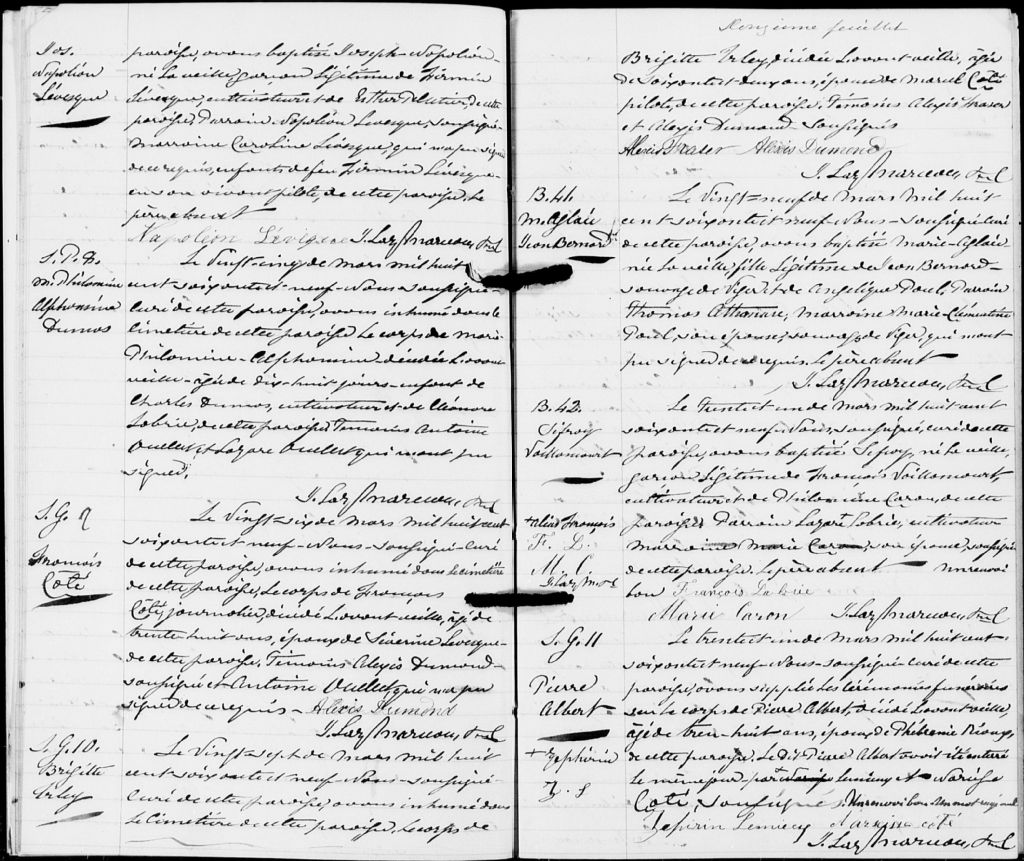 Jos.
Napoléon
Lévesque
paroisse, avons baptisé Joseph-Napoléon-
né la veille, garçon légitime de Firmin
Lévesque, cultivateur et de Esther Pelletier, de cette
paroisse, Parrain Napoléon Levesque, soussigné
Marraine Caroline Lévesque, qui n'a pu signer
de ce requis, enfants de feu Firmin Lévesque
en son vivant pilote, de cette paroisse. Le
père absent
Napoléon Lévesque J. Laz. Marceau, Ptre C
S. P. 8.
M. Philomine
Alphonsina
Dumos
Le Vingt-cinq de mars mil huit
cent soixante et neuf-Nous-soussigné-
curé de cette paroisse, avons inhumé dans le
cimetière de cette paroisse le corps de Marie
Philomine-Alphonsine décédée l'avant
veille-agée de dix-huit jours-enfant de
Charles Dumos, cultivateur et de Eléonore
Labrie, de cette paroisse Témoins Antoine
Ouellet et Lazare Ouellet qui n'ont pu
signer.
J. Laz. Marceau, Ptre C
S. G. 9
François
Coté
Le Vingt-six de mars mil huit cent
soixante et neuf-Nous-soussigné-Curé
de cette paroisse, avons inhumé dans le cimetière
de cette paroisse, le corps de François
Coté, journalier, décédé l'avant veille, agé de
trente-huit ans, époux de Séverine Levesque
de cette paroisse, Témoins Alexis Dumond-
soussigné et Antoine Ouellet qui n'a pu
signer de ce requis-Alexis Dumond
J. Laz. Marceau, Ptre C
S. G. 10.
Brigitte
Urley
Le Vingt-sept de mars mil huit
cent soixante et neuf Nous-soussigné-
curé de cette paroisse, avons inhumé dans
le cimetière de cette paroisse, le corps de
Onzième feuillet
Brigitte Urley, décédée l'avant veille, agée
de soixante et deux ans, épouse de Marcel Coté
pilote, de cette paroisse. Témoins Alexis Fraser
et Alexis Dumond-soussignés
Alexis Fraser Alexis Dumond
J. Laz. Marceau, Ptre C
B. 41
M. Aglaé
Jean Bernard
Le Vingt-neuf de mars mil huit
cent soixante et neuf-Nous-soussigné curé
de cette paroisse, avons baptisé Marie-Aglaé
née la veille, fille légitime de Jean Bernard-
sauvage de Viger et de Angelique Paul, Parrain
Thomas Athanase, Marraine Marie-Clémentine
Paul, son épouse, sauvages de Viger, qui n'ont
pu signer de ce requis. Le père absent
J. Laz. Marceau, Ptre C
B. 42.
Sifroy
Vaillancourt
+alias François
F. L.
M. C.
J. Laz. M. Ptre
Le Trente et un de mars mil huit cent
soixante et neuf-Nous, soussigné, curé de cette
paroisse, avons baptisé Sifroy, né la veille,
garçon légitime de François Vaillancourt,
cultivateur et de Philomène Caron, de cette
paroisse Parrain Lazare Labrie, cultivateur
Marraine Marie Caron, son épouse, soussignés
de cette paroisse. Le père absent Un renvoi
bon François Labrie
Marie Caron J. Laz. Marceau, Ptre C
S. G. 11
Pierre
Albert
+ Zephirin
Z. L
Le trente et un de mars mil huit cent
soixante et neuf-Nous-soussigné-curé de cette
paroisse, avons supplée les cérémonies funéraires
sur le corps de Pierre Albert, décédé l'avant veille,
agé de trente-huit ans, époux de Phébronie Rioux,
de cette paroisse. Le dit Pierre Albert avait été enterré
le même jour par Lemieux et Narcisse
Coté, soussignés, Un renvoi bon Un mot rayé nul
Zepirin Lemieux Narcisse coté
J. Laz. Marceau, Ptre C